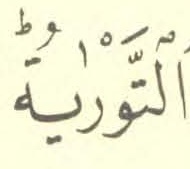 اَلتَّوْرٰيةُؕ